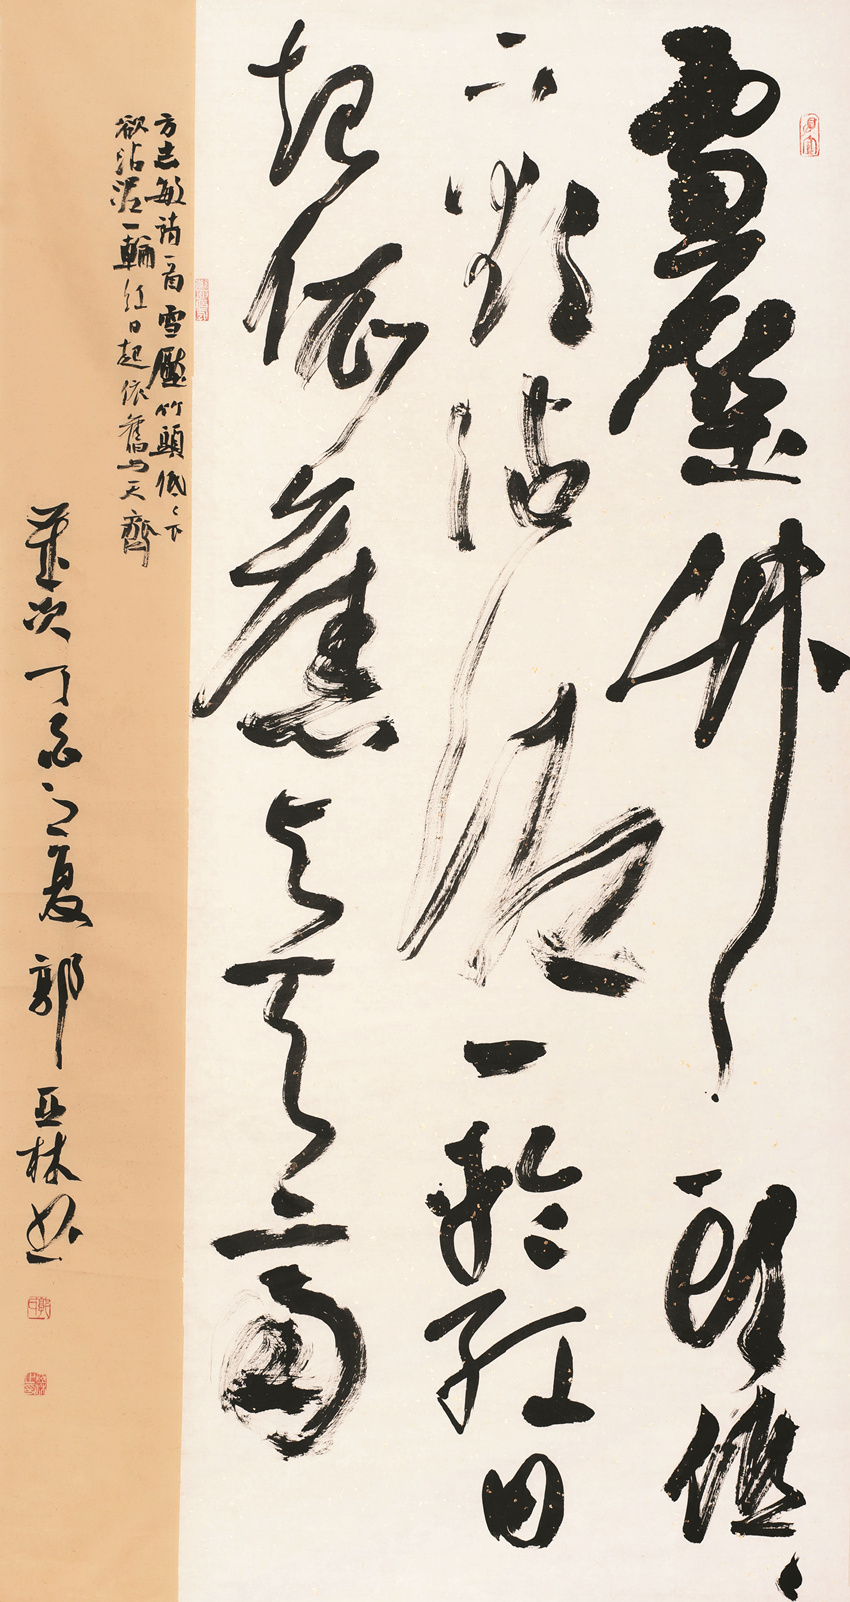 雪壓竹頭低〻
下欲沾泥一輪紅日
起依舊與天齊
方志敏詩一首雪壓竹頭低〻下
欲沾泥一輪紅日起依舊与天齊
歲次丁酉之夏郭亚林书